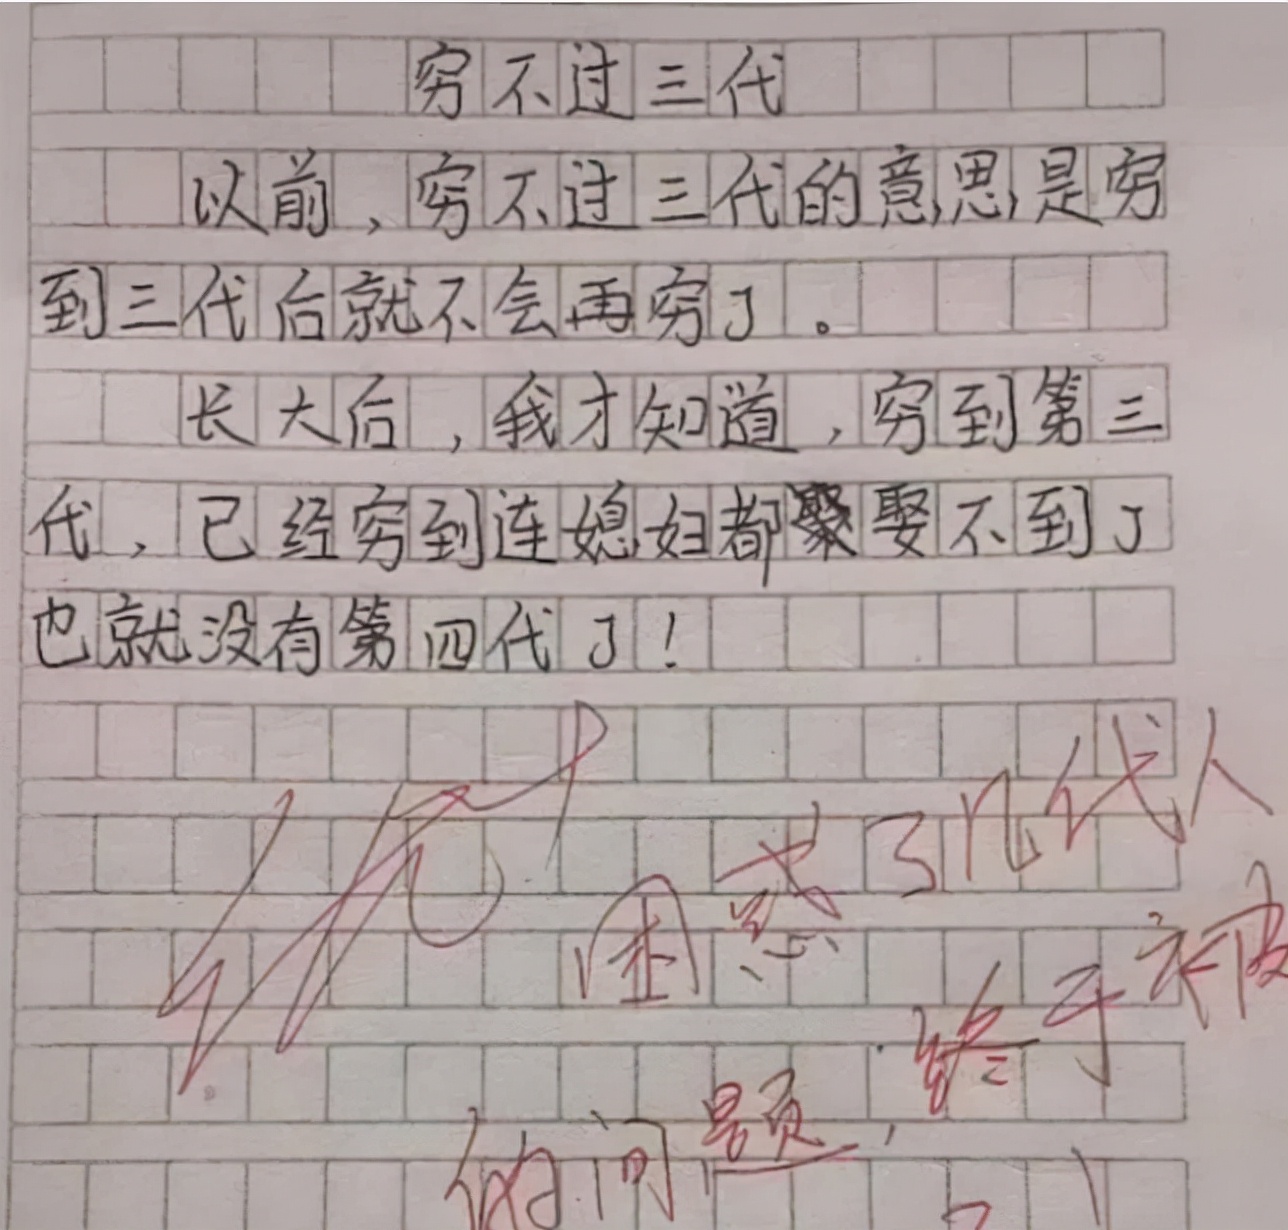 穷不过三代
以前，穷不过三代的意思，是穷
到三代后就不会再穷了。
长大后，我才知道，穷到第三
代，已经穷到连媳妇都娶不到了
也就没有第四代了！
优
困惑了几代人
的问题，终于被